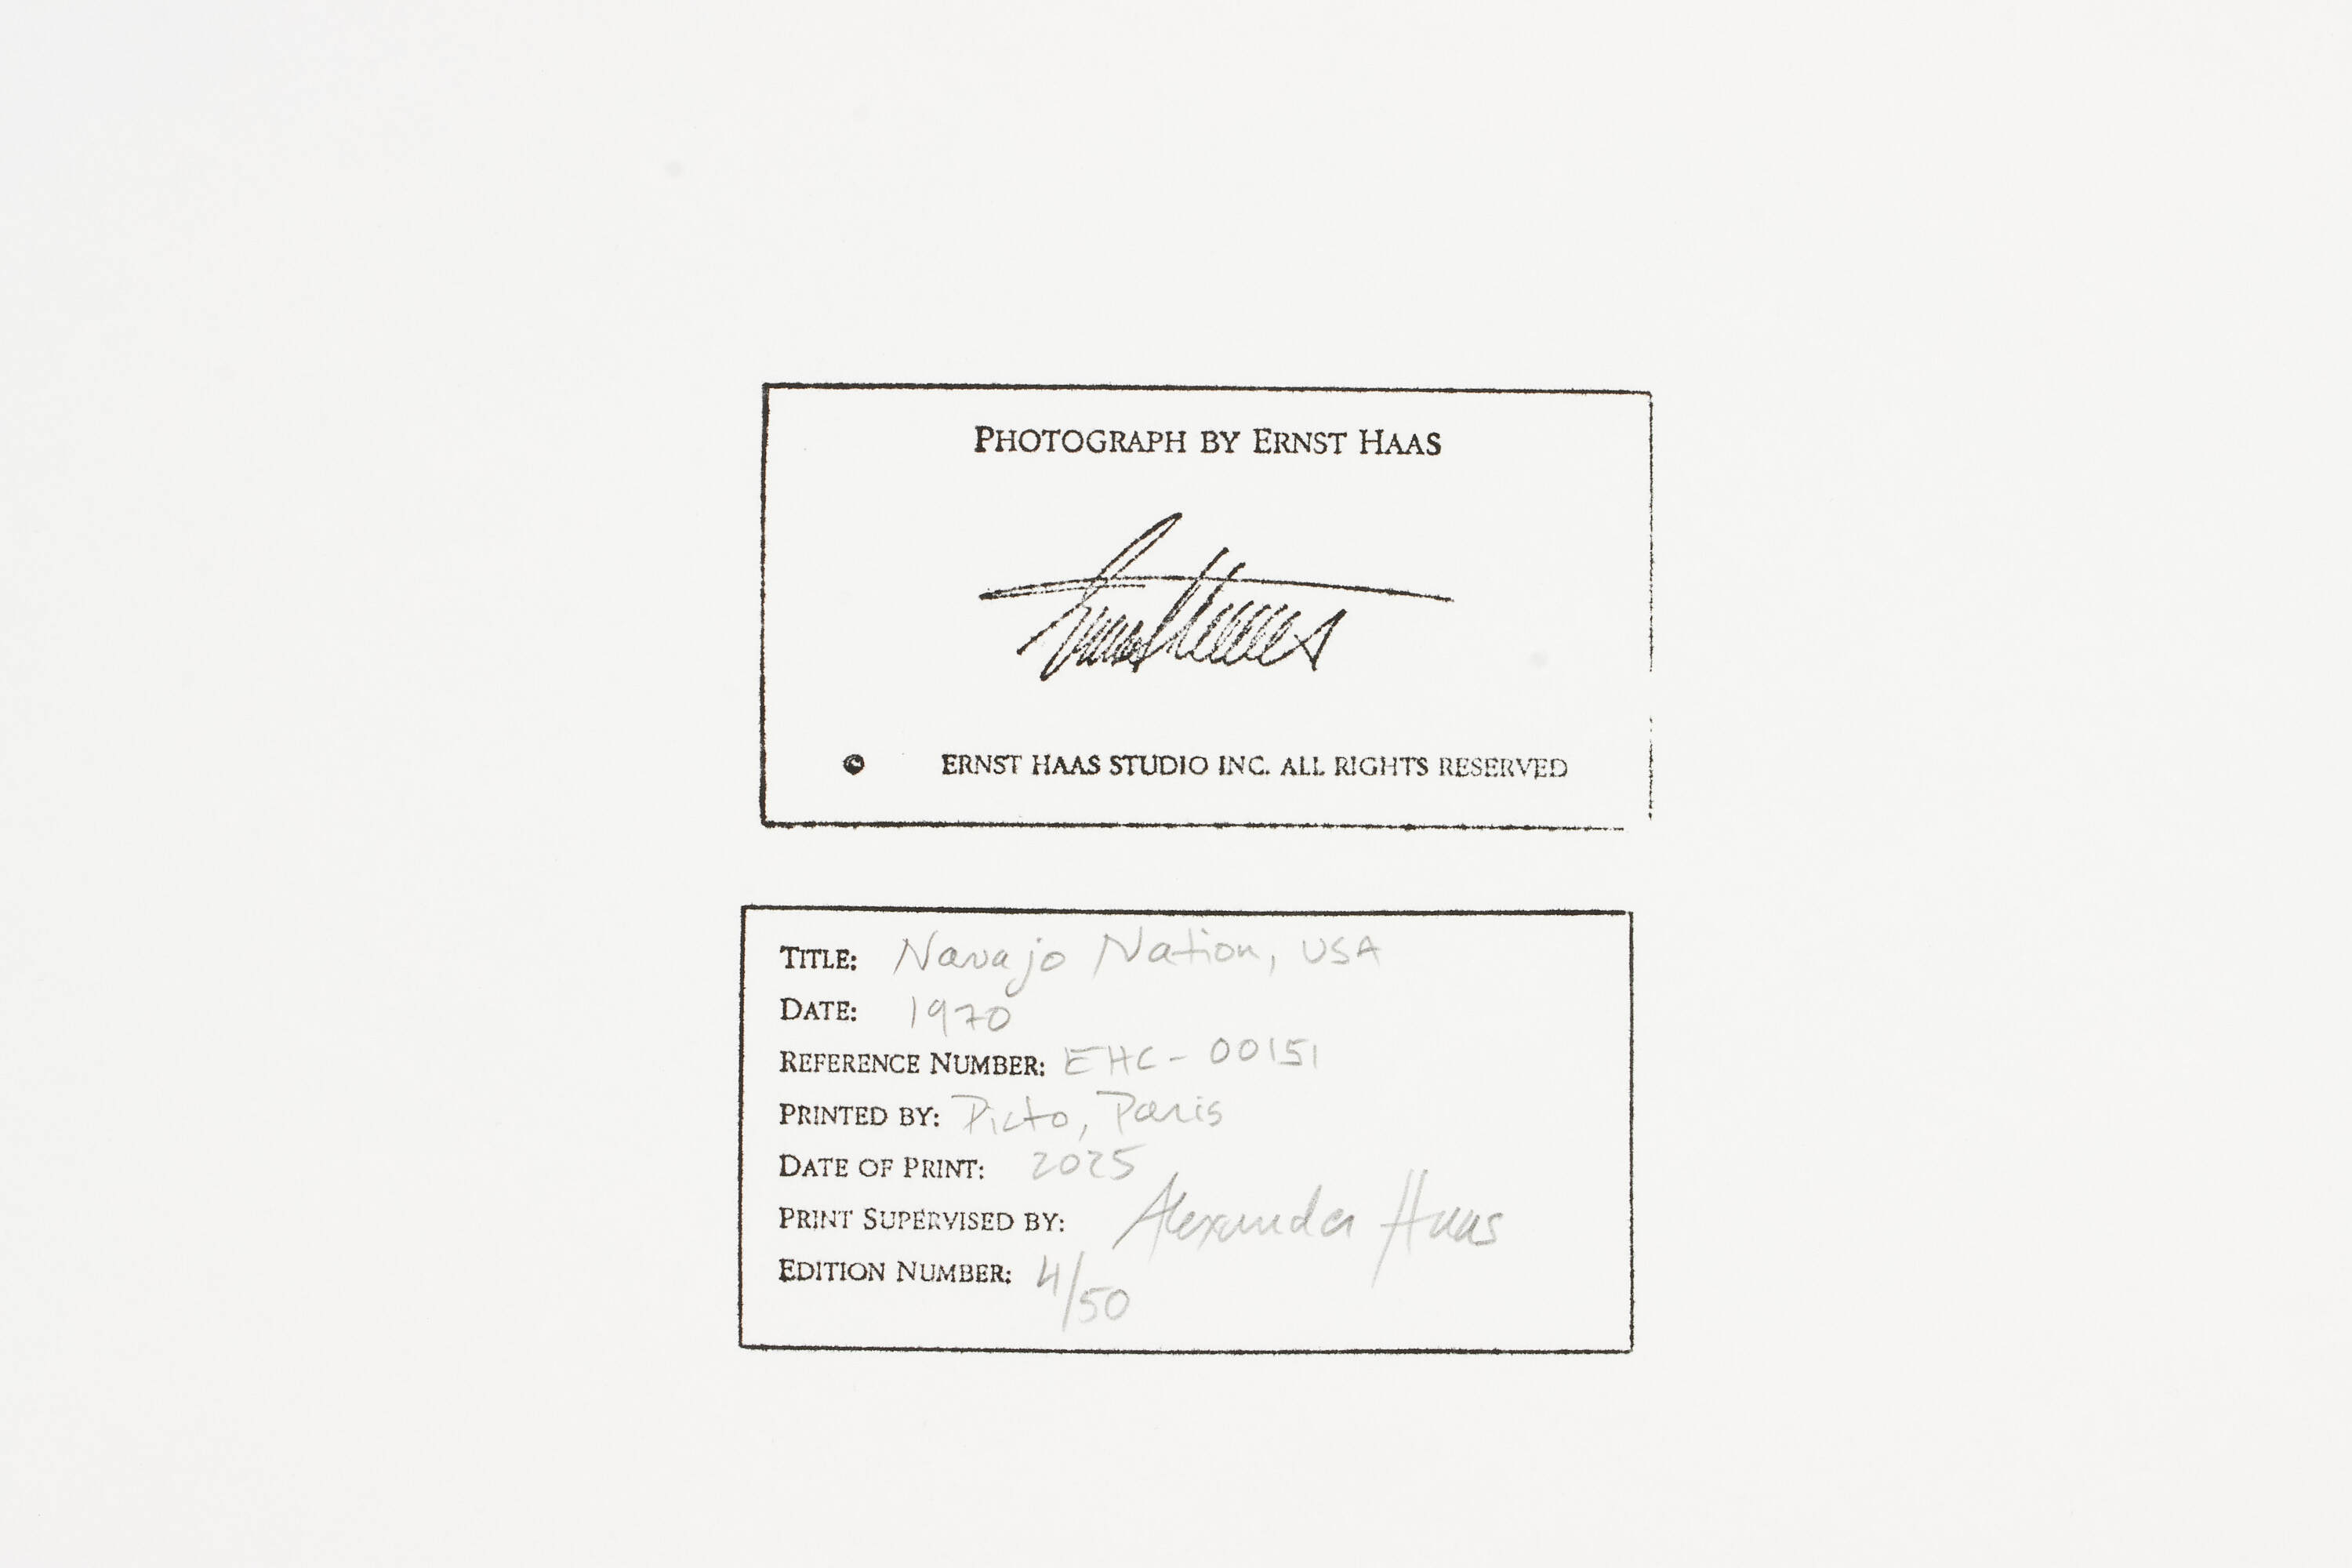 PHOTOGRAPH BY ERNST HAAS
Ernst Haas
© ERNST HAAS STUDIO INC. ALL RIGHTS RESERVED
TITLE: Navajo Nation, USA
DATE: 1970
REFERENCE NUMBER: EHC-00151
PRINTED BY: Picto, Paris
DATE OF PRINT: 2025
PRINT SUPERVISED BY: Alexander Haas
EDITION NUMBER: 4/50